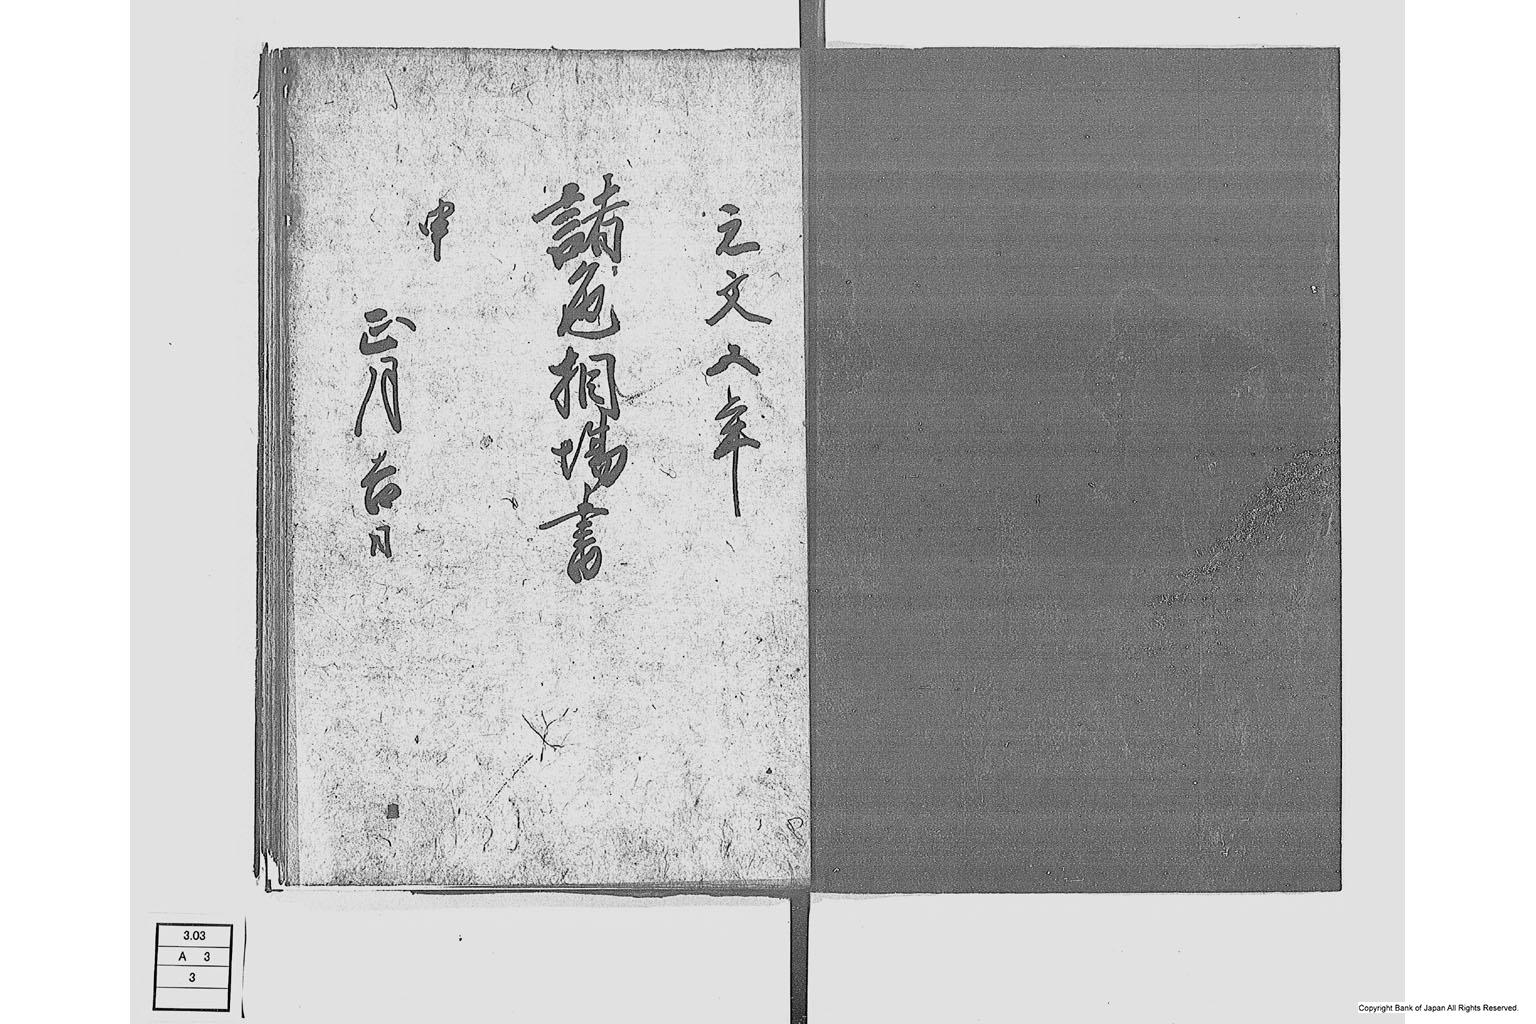 元文五年
諸色相場書
申
正月吉日
3.03
A 3
3
Copyright Bank of Japan All Rights Reserved.